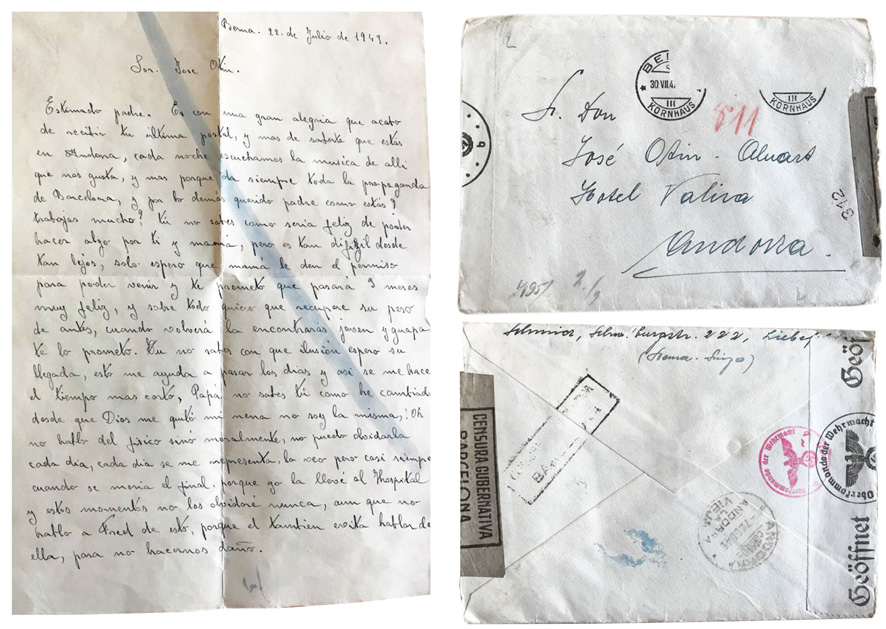 Berna. 22. de Julio de 1943.
Sr. José Otin.
Estimado padre. Es con una gran alegria que acabo
de recibir tu última postal, y mas de saberte que estás
en Andorra, cada noche escuchamos la musica de alli
que nos gusta, y mas porque da siempre toda la propaganda
de Barcelona, y por lo demás querido padre como estás?
trabajas mucho? tu no sabes como seria feliz de poder
hacer algo por ti y mama, pero es tan dificil desde
tan lejos, solo espero que a mamá le den el permiso
para poder venir y te prometo que pasará 3 meses
muy feliz, y sobre todo quiero que recupere su peso
de antes, cuando volverá la encontrarás joven y guapa
te lo prometo. Tu no sabes con que ilusión espero su
llegada, esto me ayuda a pasar los dias y asi se me hace
el tiempo mas corto, Papá no sabes tú como he cambiado
desde que Dios me quitó mi nena no soy la misma, Oh
no hablo del fisico sinó moralmente, no puedo olvidarla
cada dia, cada dia se me representa, la veo pero casi siempre
cuando se moria el final. porque yo la llevé al Hospital
y estos momentos no los olvidaré nunca, aun que no
hablo a Fred de esto, porque el tambien evita hablar de
ella, para no hacernos daño.
BE
30 VII.4.
III
KORNHAUS
III
KORNHAUS
811
Sr. Don
José Otin - Aluart
Hotel Valira
Andorra.
312
222, Liebef
Geöf
CENSURA GUBERNATIVA
BARCELONA
Oberkommando der Wehrmacht
Oberkommando der Wehrmacht
ANDORRA
VIEJA
Geöffnet